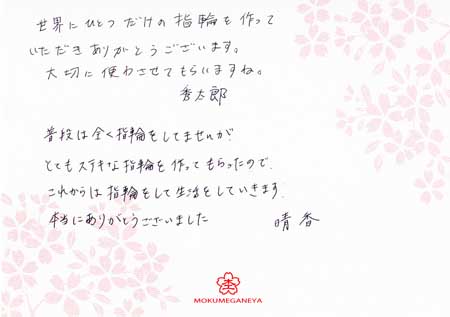 世界にひとつだけの指輪を作って
いただきありがとうございます。
大切に使わさせてもらいますね。
秀太郎
普段は全く指輪をしてませんが、
とてもステキな指輪を作ってもらったので、
これからは指輪をして生活をしていきます。
本当にありがとうございました
晴香
MOKUMEGANEYA